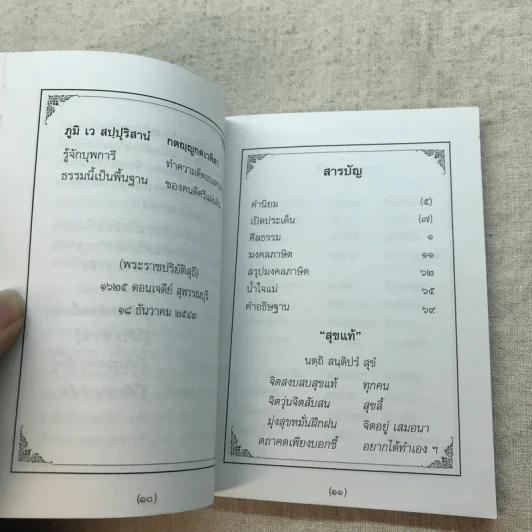 ภูมิ เว สปฺปุริสานํ กตญฺญูกตเวทิตา
รู้จักบุพการี ทำความดีตอบแทน
ธรรมนี้เป็นพื้นฐาน ของคนดีศรี
(พระราชปริยัติสุธี)
๑๖๒๕ ดอนเจดีย์ สุพรรณบุรี
๑๘ ธันวาคม ๒๕๔๓
(๑๐)
สารบัญ
คำนิยม (๕)
เปิดประเด็น (๗)
ศีลธรรม ๑
มงคลภาษิต ๑๑
สรุปมงคลภาษิต ๖๒
น้ำใจแม่ ๖๕
คำอธิษฐาน ๖๙
“สุขแท้”
นตฺถิ สนฺติปรํ สุขํ
จิตสงบสบสุขแท้ ทุกคน
จิตวุ่นจิตสับสน สุขลี้
มุ่งสุขหมั่นฝึกฝน จิตอยู่ เสมอนา
ตถาคตเพียงบอกชี้ อยากได้ทำเอง ฯ
(๑๑)